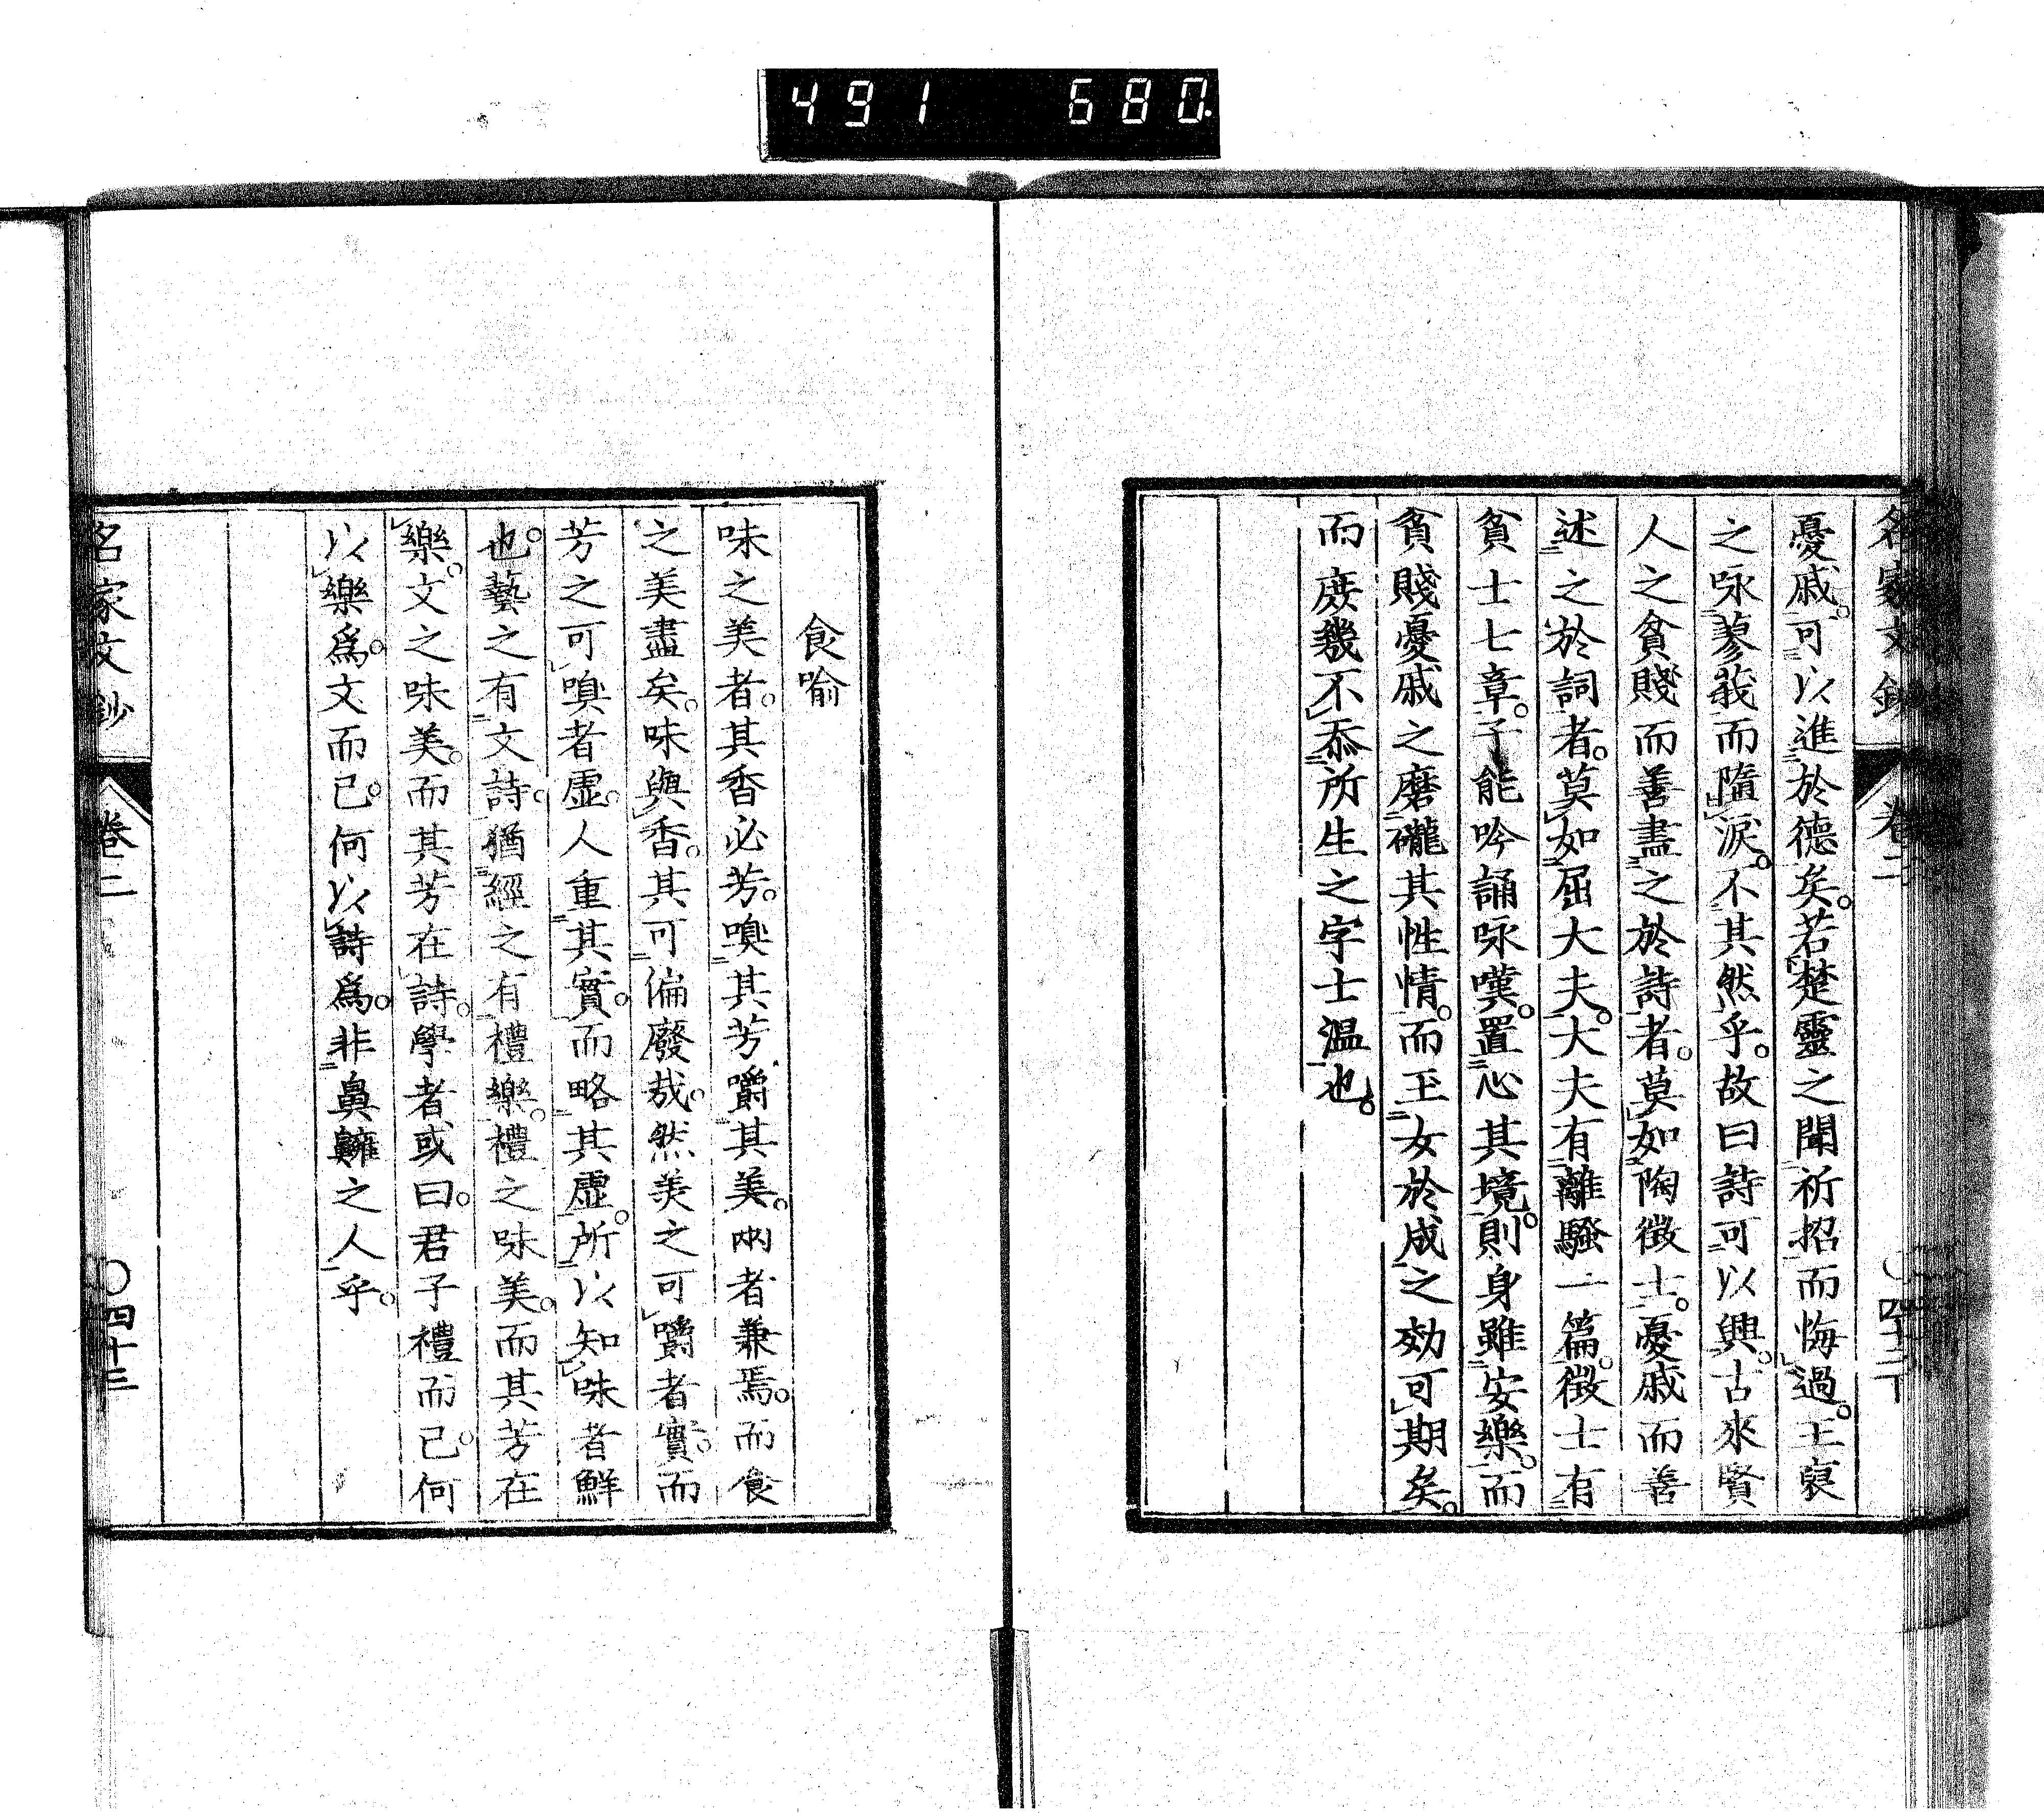 491 680.
名家文鈔 卷二 〇四十二
憂戚。可以進於德矣。若楚靈之聞祈招而悔過。王裒
之咏蓼莪而隨淚。不其然乎。故曰詩可以興。古來賢
人之貧賤而善盡之於詩者。莫如陶徵士。憂戚而善
述之於詞者。莫如屈大夫。大夫有離騷一篇。徵士有
貧士七章。子能吟誦咏嘆。置心其境。則身雖安樂。而
貧賤憂戚之磨礲其性情。而玉女於成之効可期矣。
而庶幾不忝所生之字士溫也。
食喻
味之美者。其香必芳。嗅其芳。嚼其美。兩者兼焉。而食
之美盡矣。味與香。其可偏廢哉。然美之可嚼者實。而
芳之可嗅者虛。人重其實。而略其虛。所以知味者鮮
也。藝之有文詩。猶經之有禮樂。禮之味美。而其芳在
樂。文之味美。而其芳在詩。學者或曰。君子禮而已。何
以樂爲。文而已。何以詩爲。非鼻齆之人乎。
名家文鈔 卷二 〇四十三